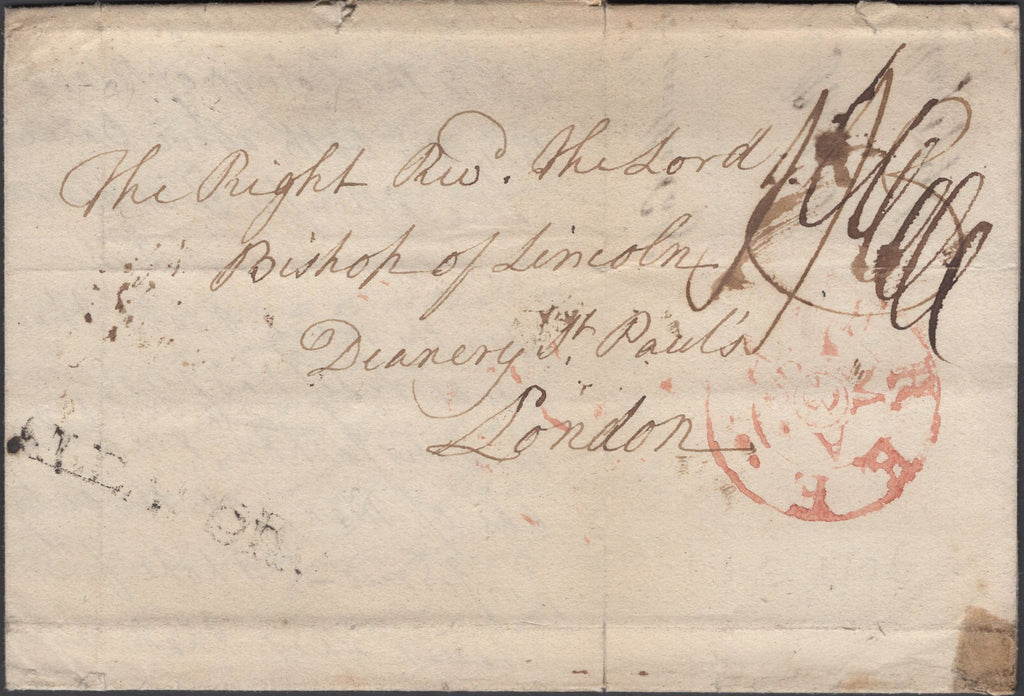 The Right Revd. The Lord
Bishop of Lincoln
Deanery St. Paul's
London
FREE